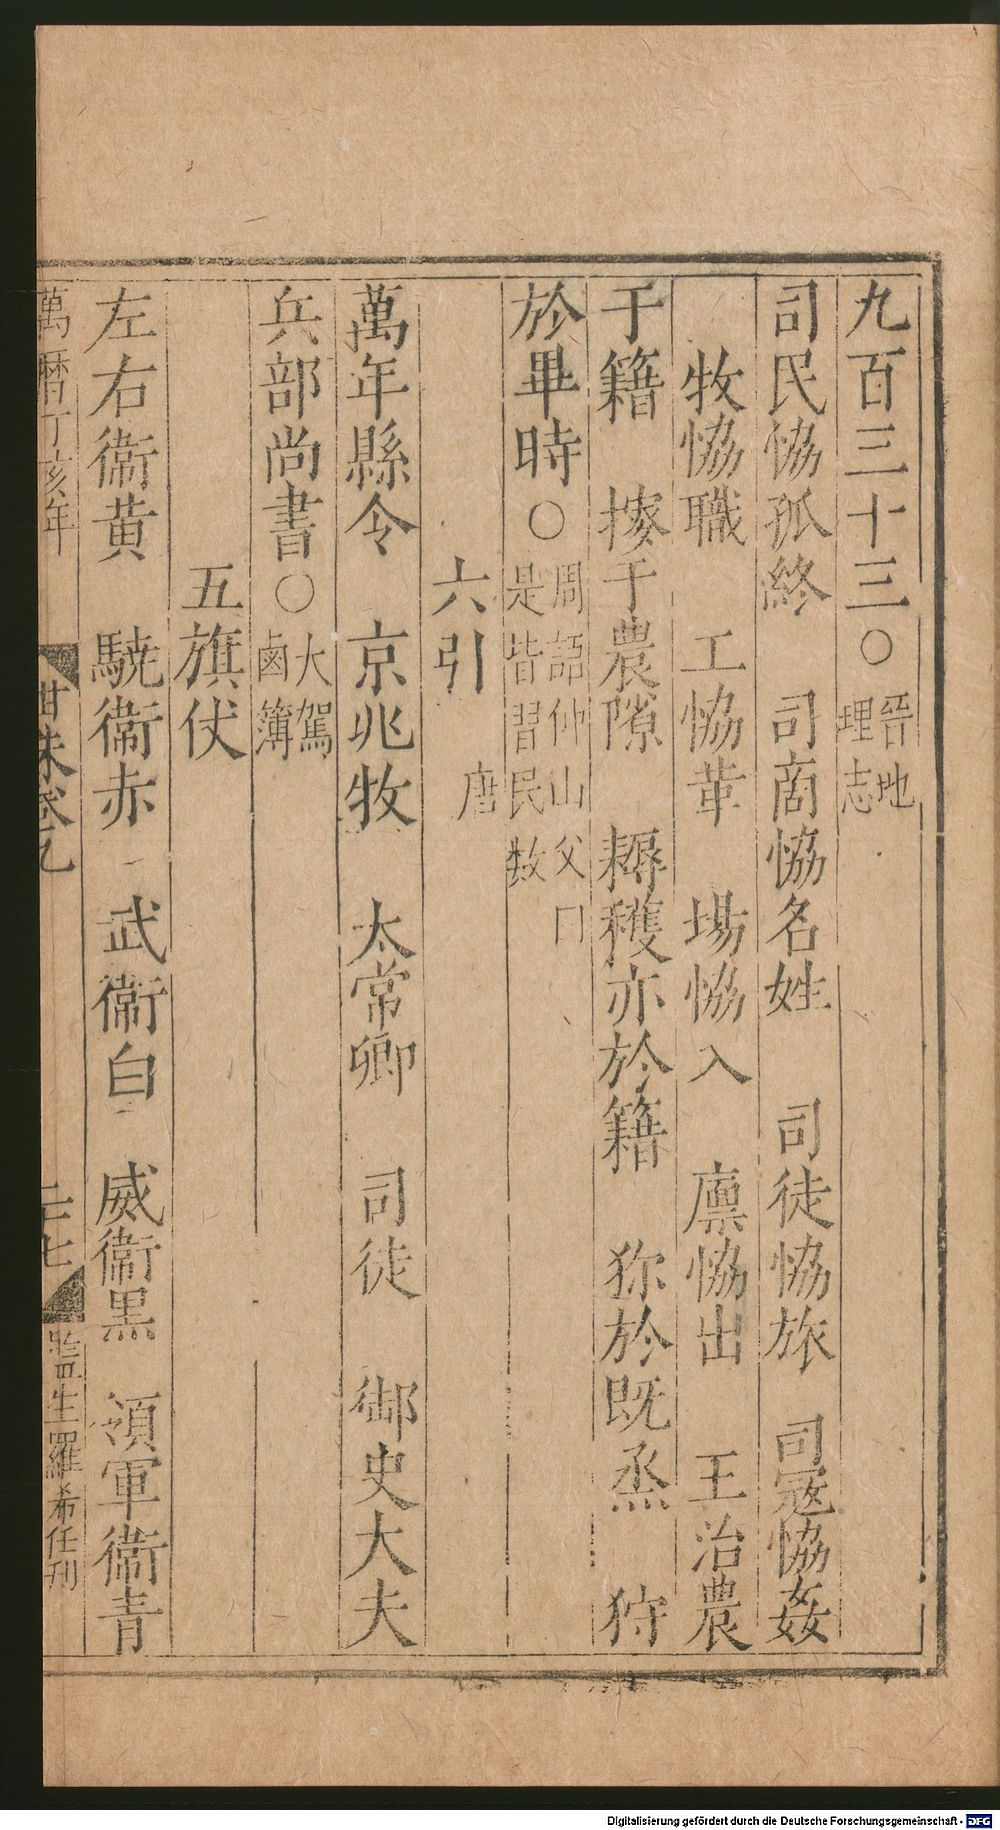 九百三十三○晉地理志
司民協孤終　司商協名姓　司徒協旅　司寇協姦
牧協職　工協革　場協入　廪協出　王治農
于籍　㨿于農隙　耨穫亦於籍　狝於既烝　狩
於畢時○周語仲山父曰是皆習民数
六引　唐
萬年縣令　京兆牧　太常卿　司徒　御史大夫
兵部尚書○大駕鹵簿
五旗仗
左右衞黄　驍衞赤　武衞白　威衞黒　領軍衞青
萬曆丁亥年　珠卷乙　二十七　監生羅希任刊
Digitalisierung gefördert durch die Deutsche Forschungsgemeinschaft - DFG